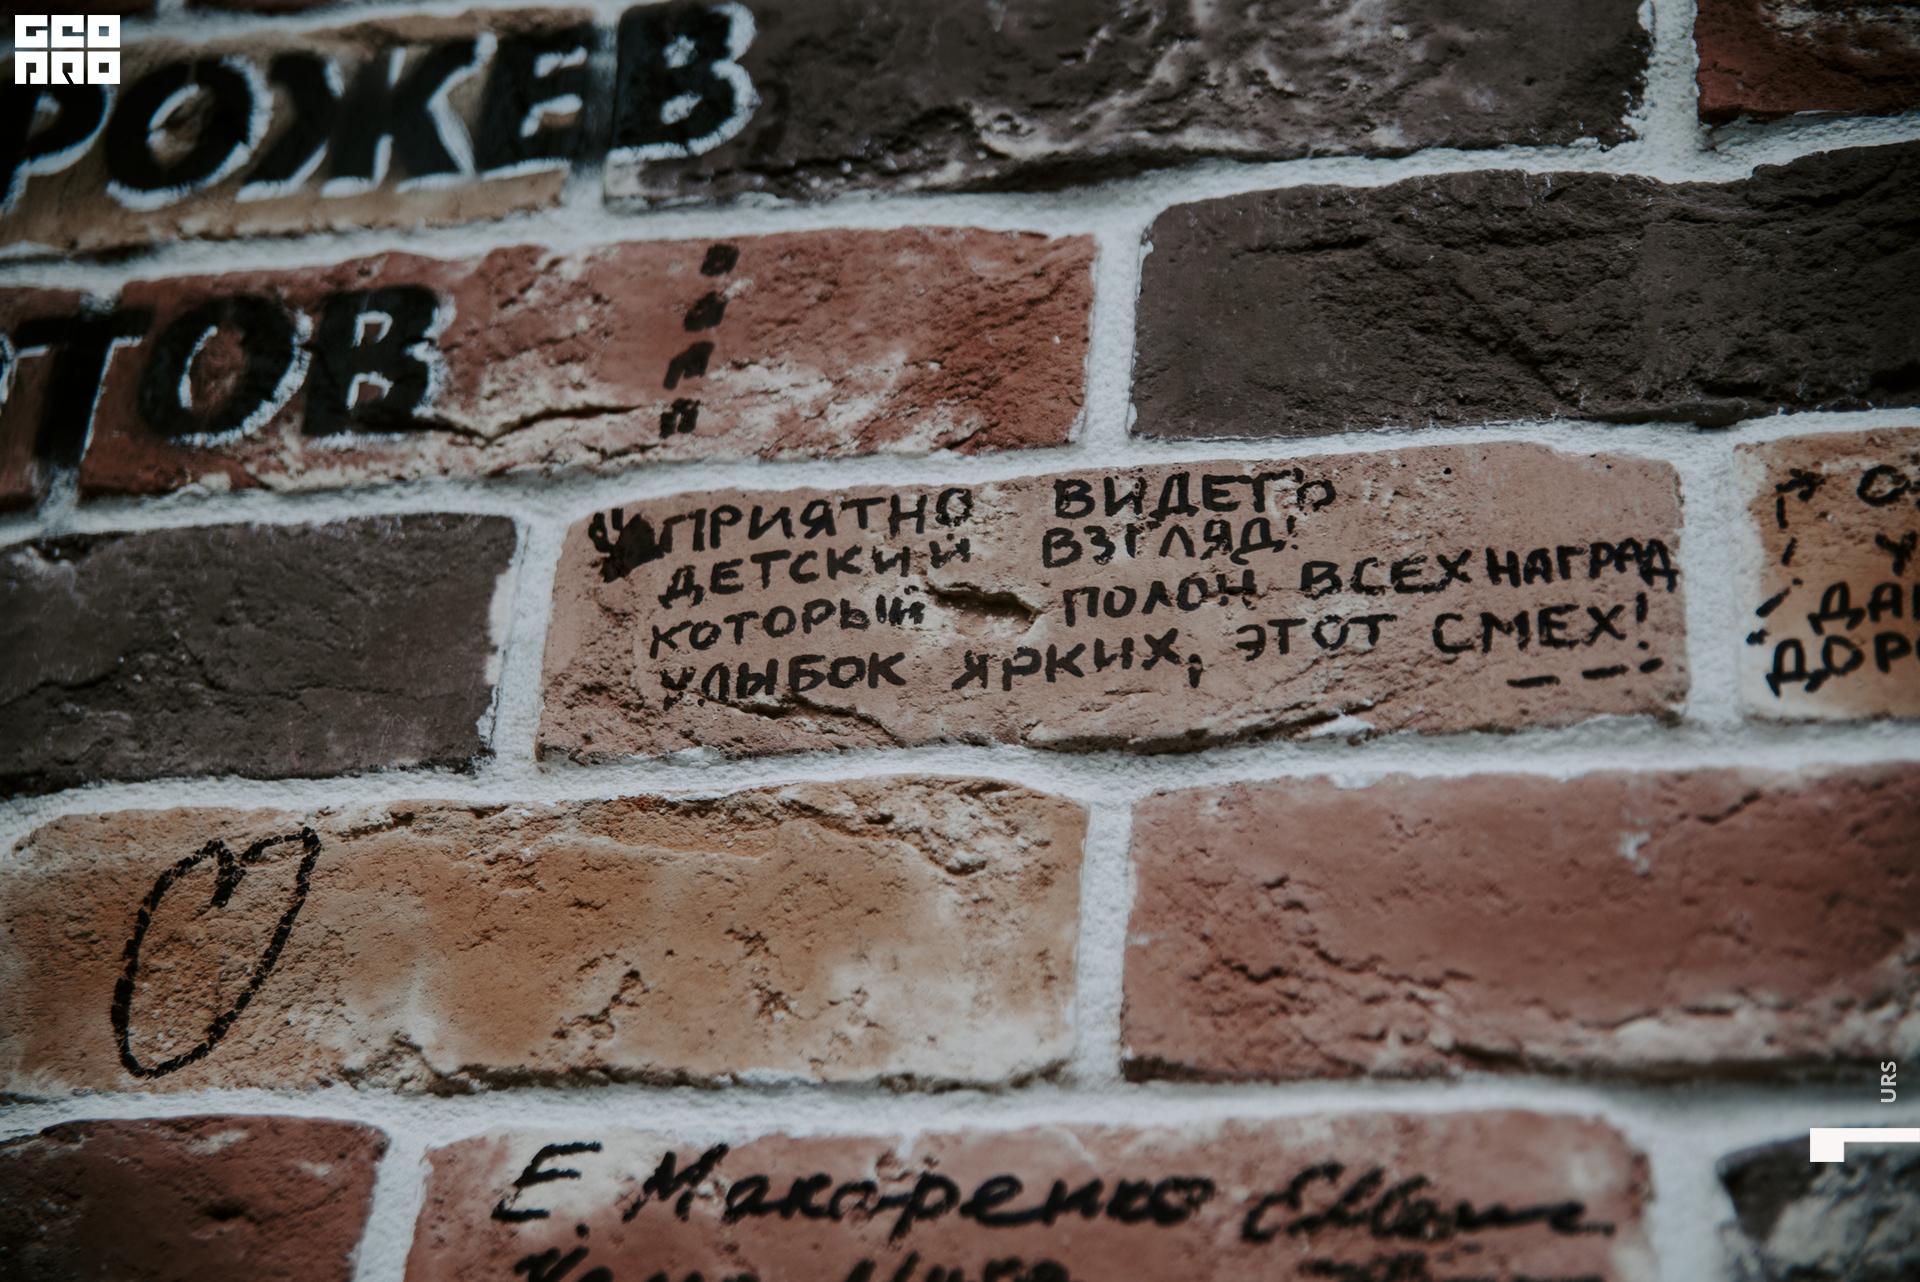 GEO
PRO
РОЖЕВ
ТОВ
ПРИЯТНО ВИДЕТЬ
ДЕТСКИЙ ВЗГЛЯД!
КОТОРЫЙ ПОЛОН ВСЕХ НАГРАД
УЛЫБОК ЯРКИХ, ЭТОТ СМЕХ!
URS
Е. Макаренко